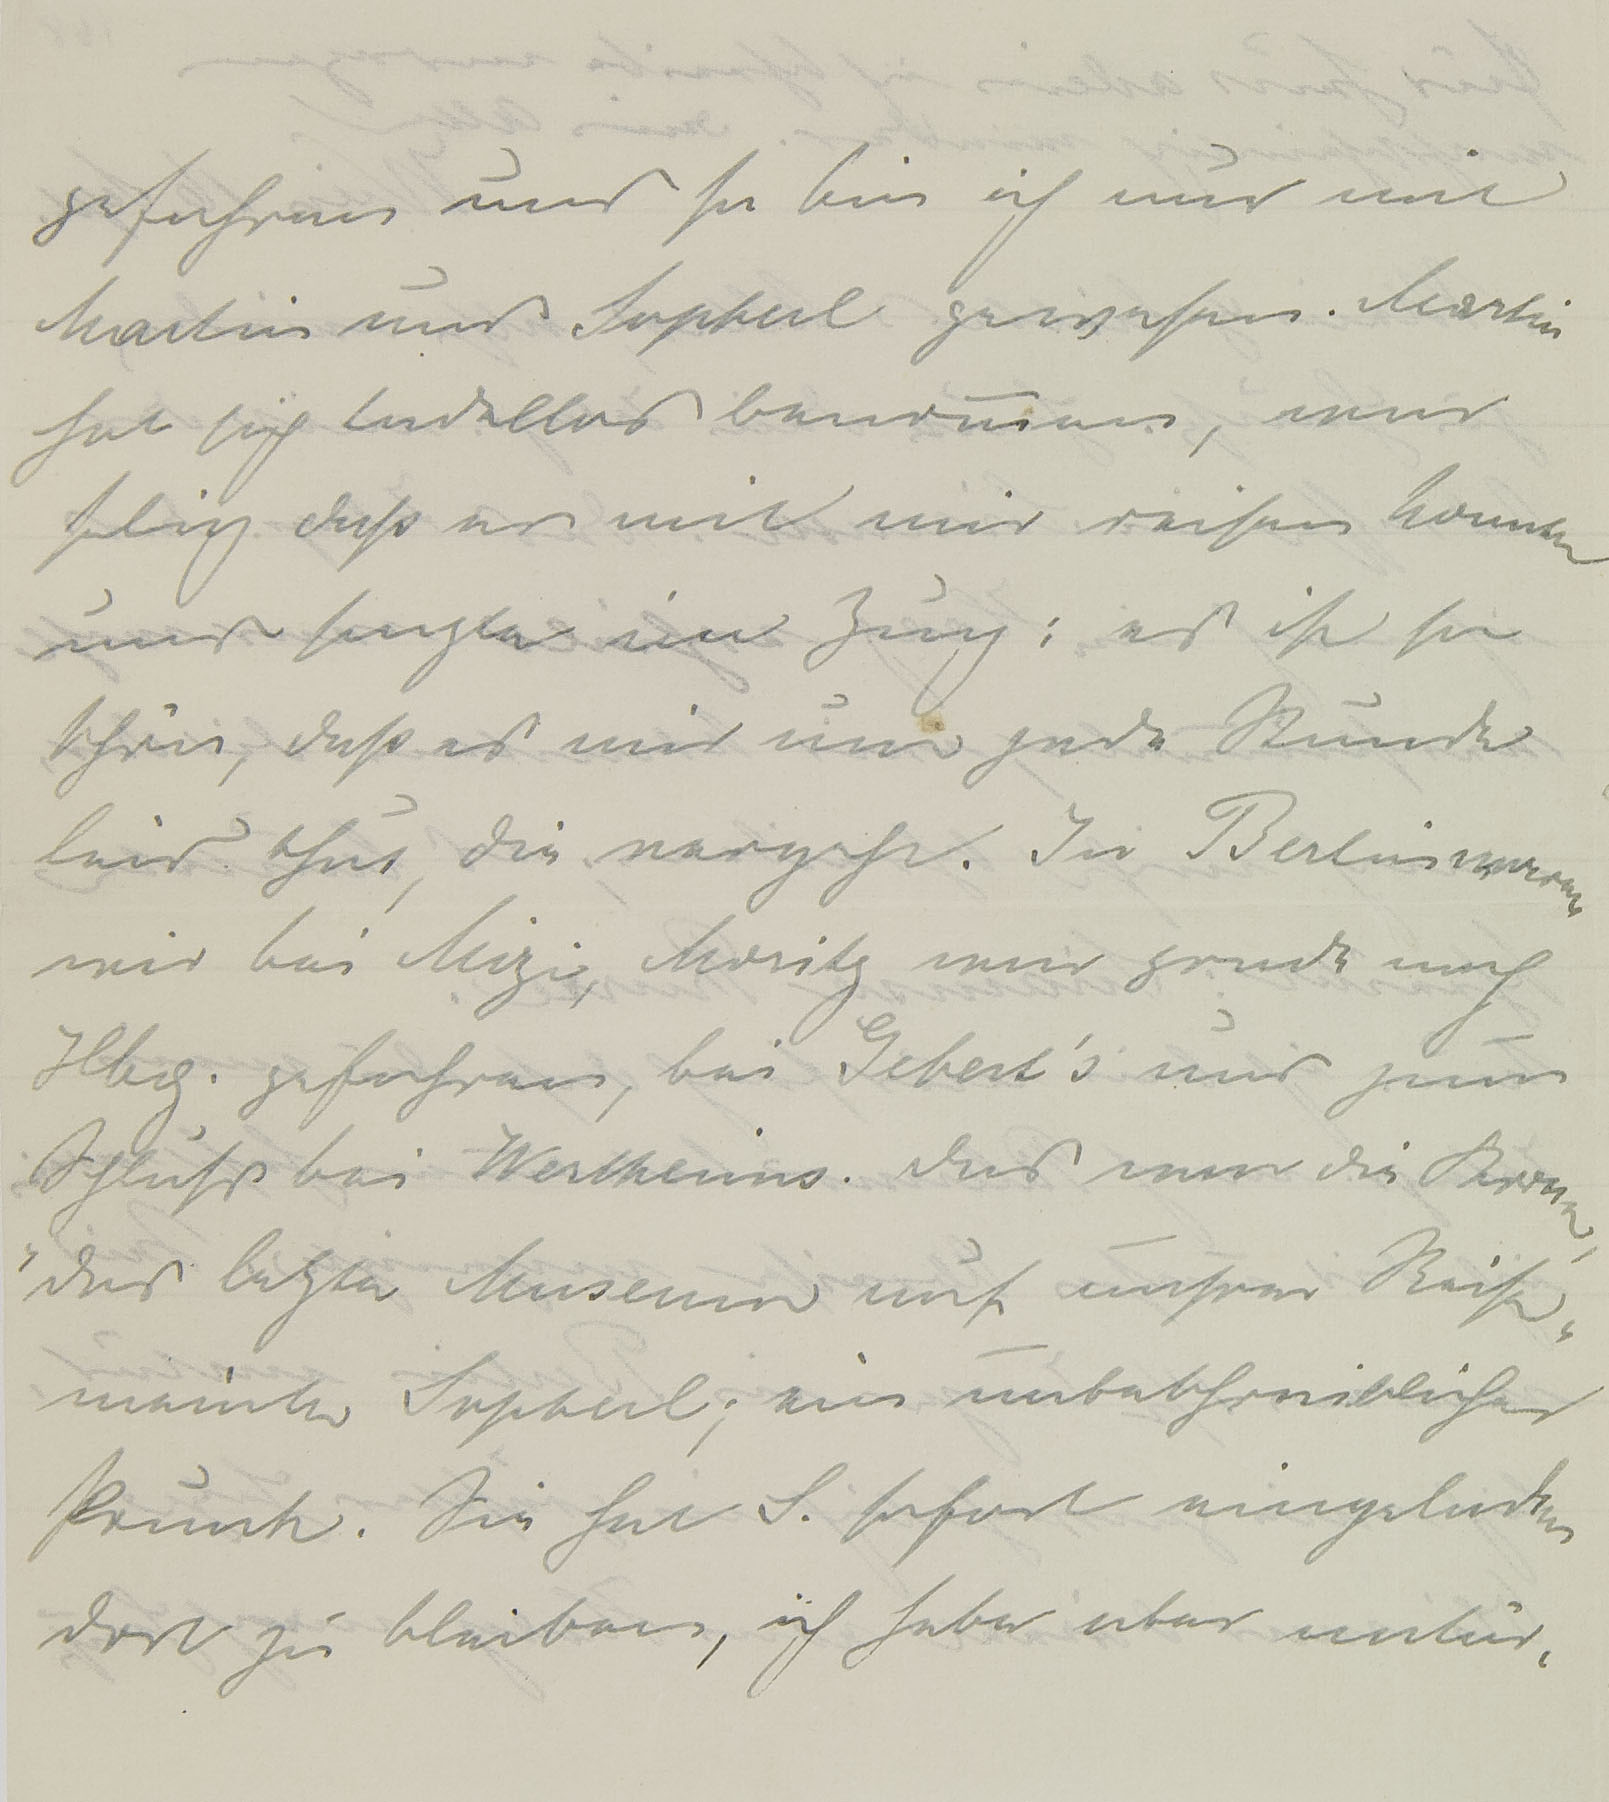 gefahren und so bin ich nur mit
Martin und Sopherl gewesen. Martin
hat sich tadellos benom̅en, war
selig daß er mit mir reisen konnte
und sagte im Zug: es ist so
schön, daß es mir um jede Stunde
leid thut, die vergeht. In Berlin waren
wir bei Mizi, Moritz war grade nach
Hbg. gefahren, bei Gebert's und zum
Schluß bei Wertheims. Das war die Krone,
"das letzte Museum auf unsrer Reise"
meinte Sopherl; ein unbeschreiblicher
Prunk. Sie hat S. sofort eingeladen
dort zu bleiben, ich habe aber natür-